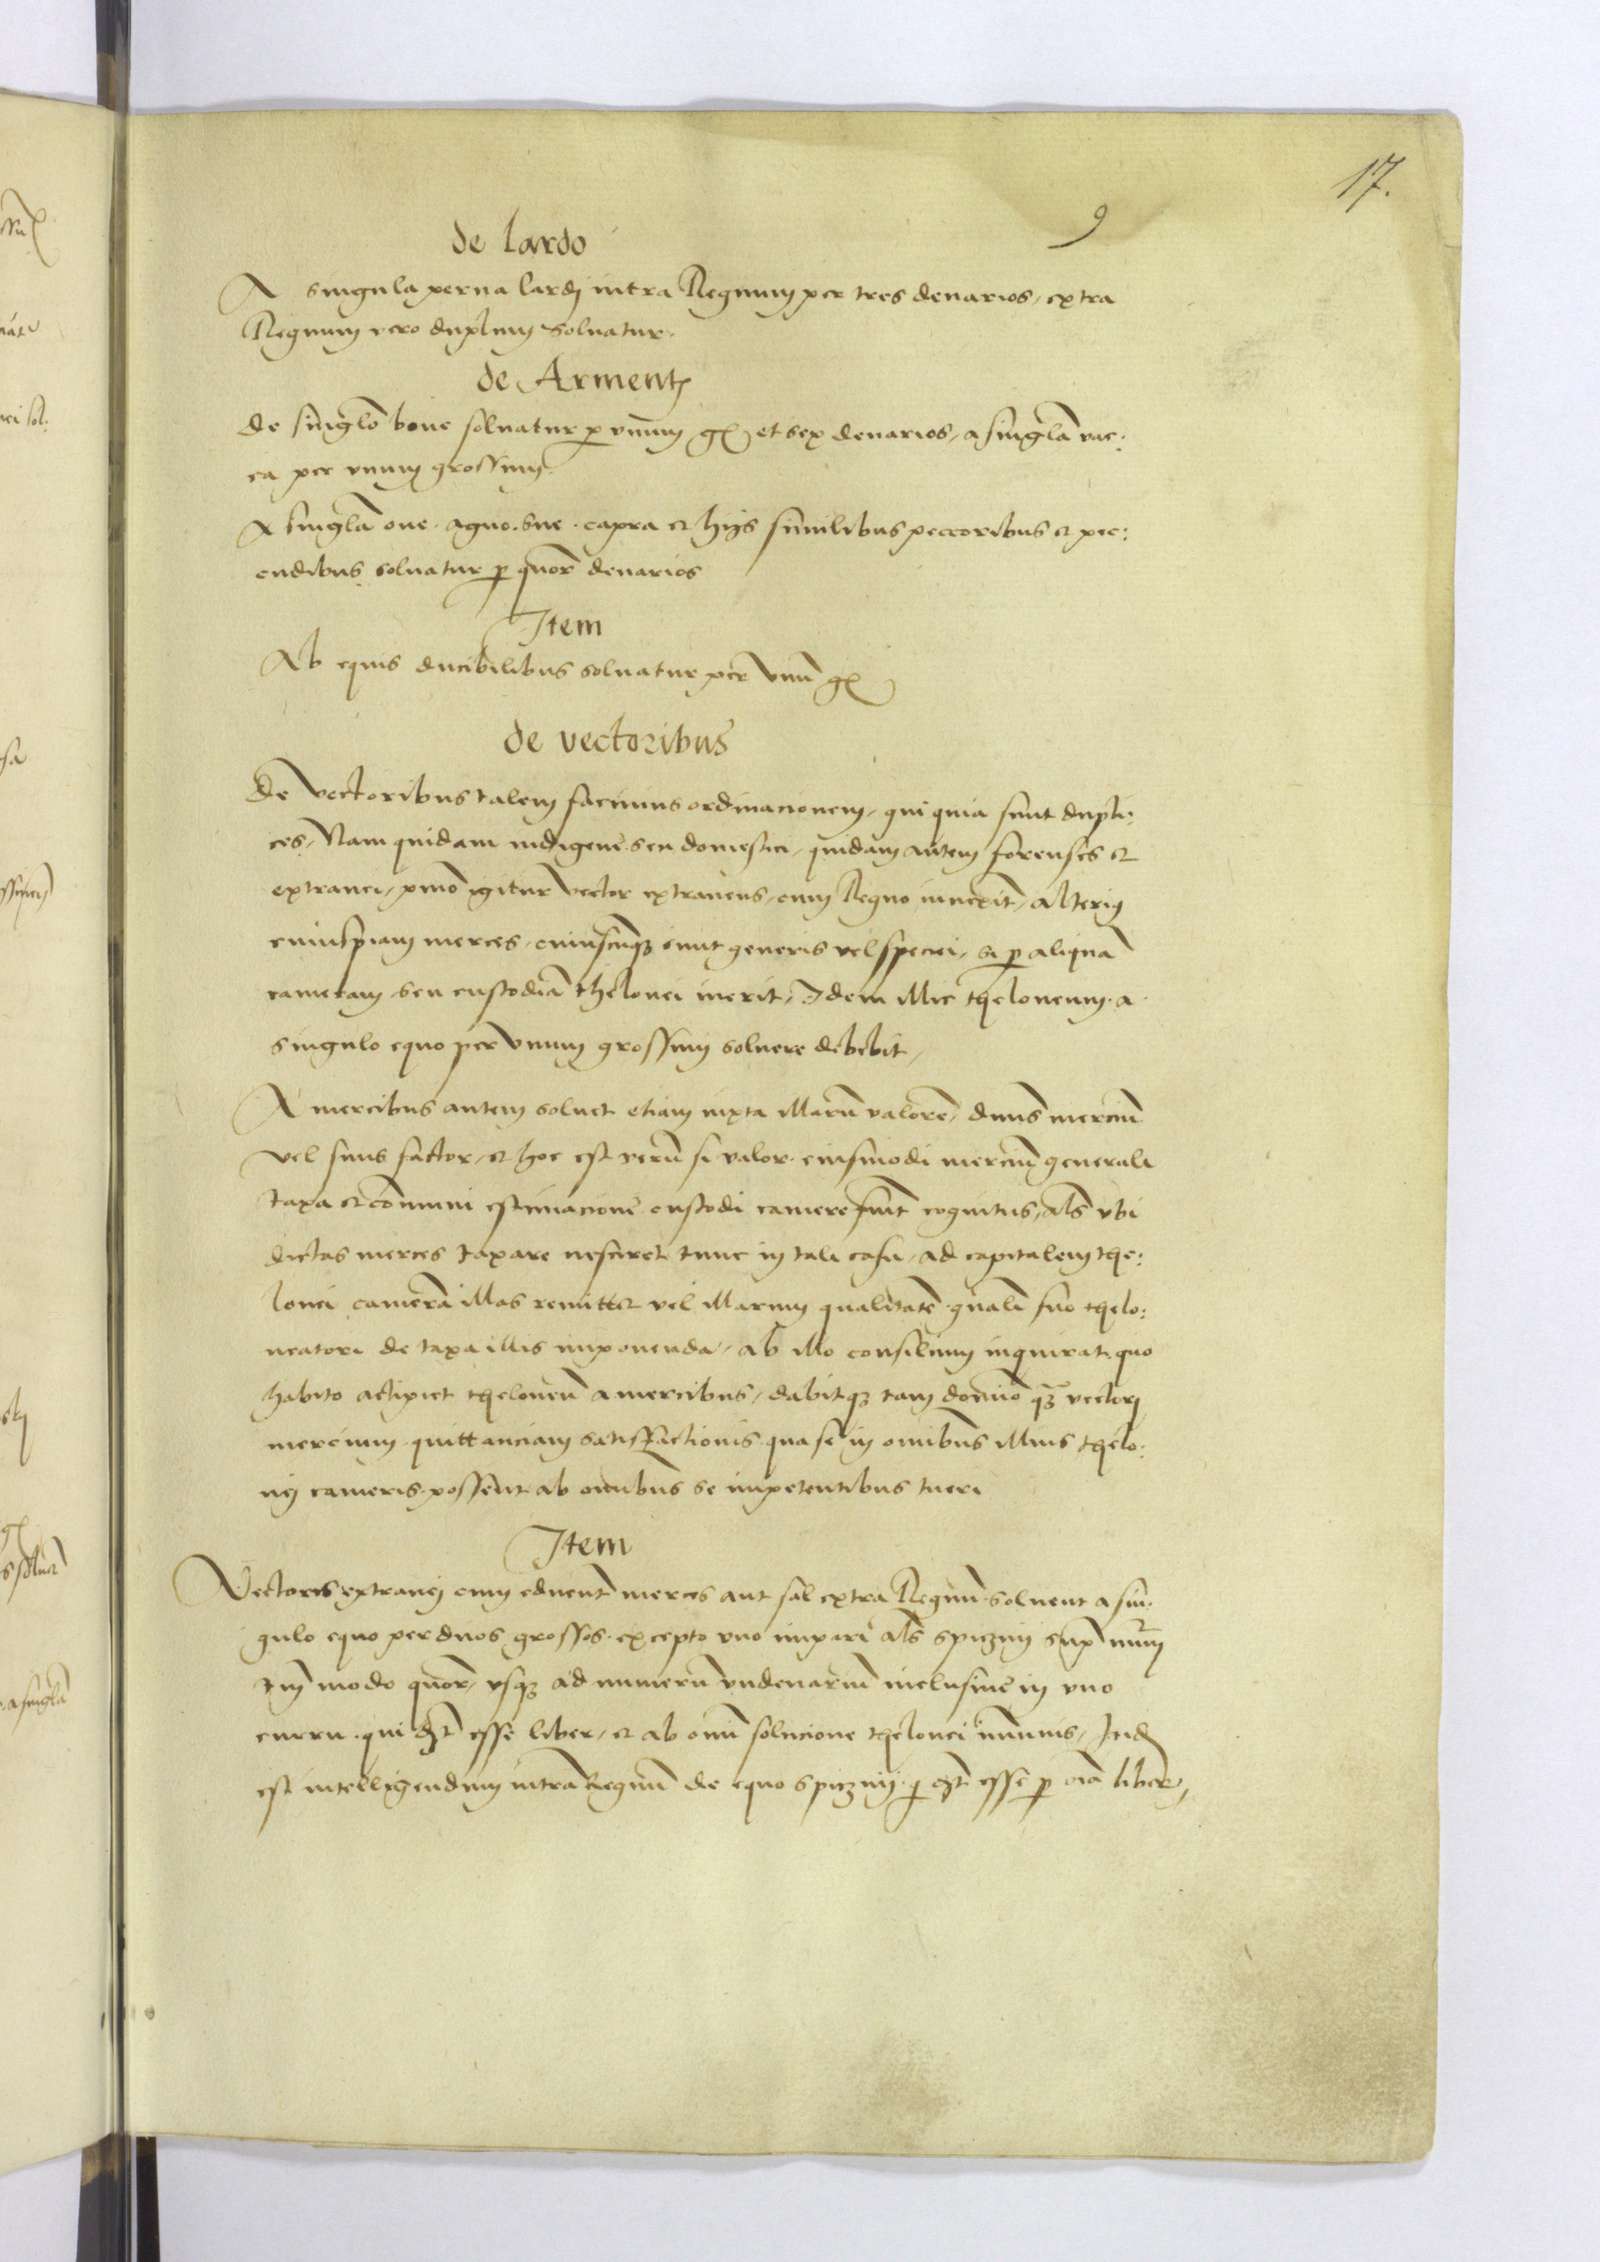 17.
9
de lardo
A singula perna lardj intra Regnum per tres denarios, extra
Regnum vero duplum soluatur.
de Armentis
De singlo boue soluatur p vnum gs et sex denarios, a singla vac:
ca per vnum grossum.
A singla oue. agno. sue. capra et hijs similibus peccoribus et pec:
cudibus soluatur p quor denarios
Item
Ab equis ducibilibus soluatur per vnu gs
de vectoribus
De vectoribus talem facimus ordinacionem, qui quia sunt dupli:
ces, Nam quidam indigene seu domestici, quidam autem forenses et
extranei, pmo igitur vector extraneus, cum Regno inuexit, alterius
cuiuspiam merces, cuiuscuq sint generis vel speciei, si p aliqua
cameram seu custodia thelonei ierit, Idem illic theloneum. a
singulo equo per vnum grossum soluere debebit,
A mercibus autem soluet etiam iuxta illaru valore, dnus merciu
vel suus factor, et hoc est veru si valor. eiusmodi merciu generali
taxa et comuni estimacione custodi camere fuit cognitus, als vbi
dictas merces taxare nesciret tunc in tali casu, ad capitalem the:
lonei camera illas remittet vel illarum qualitate gnali suo thelo:
neatori de taxa illis imponenda, ab illo consilium inquirat. quo
habito accipiet theloneu a mercibus, dabitq tam domino q vectorj
mercium. quittanciam satisfactionis. qua se in omibus illius thelo:
nij cameris. possent ab omibus se impetentibus tueri
Item
Vectores extranej cum educent merces aut sal extra Regnu. soluent a sin:
gulo equo per duos grossos. excepto vno impari als spiznij sup nurum
tm modo quor, vsq ad numeru vndenariu inclusiue in vno
curru. qui dz esse liber, et ab omi solucione thelonei imunis, Itid
est intelligendum intra Regnu de equo spiznij. q dz esse p oia liber,